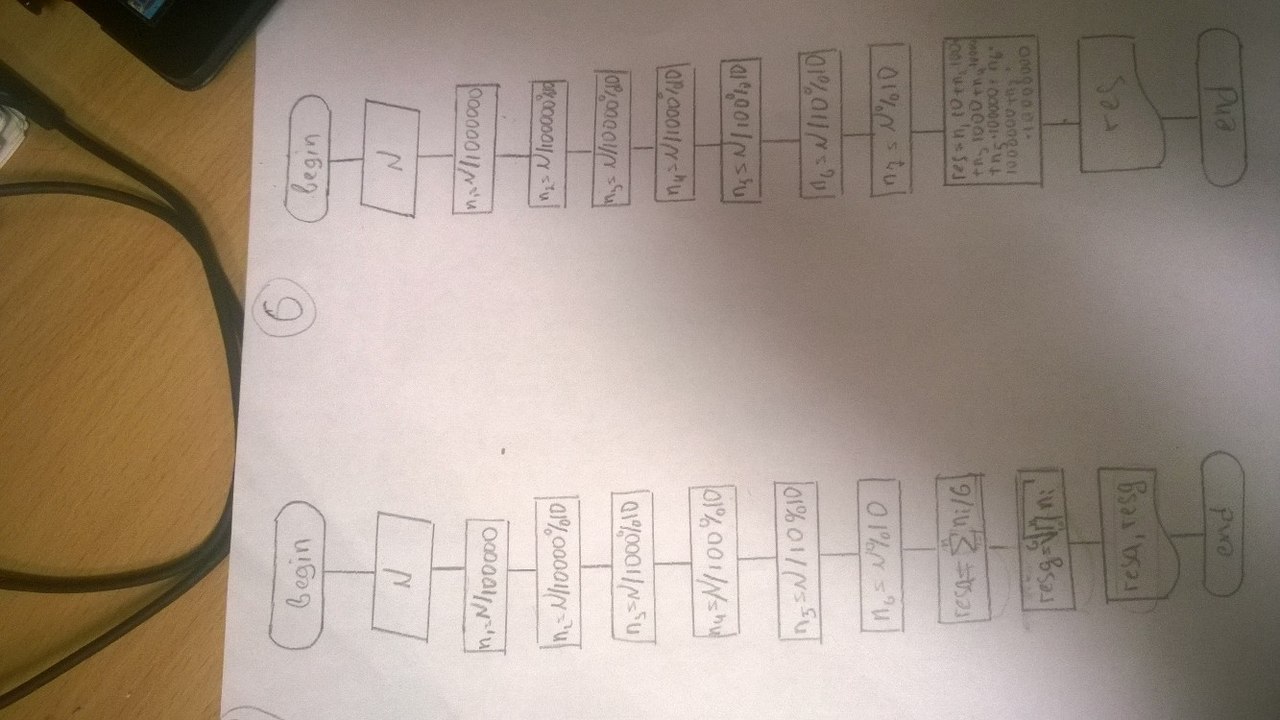 Begin
N
n₁=N/100000
n₂=N/10000%10
n₃=N/1000%10
n₄=N/100%10
n₅=N/10%10
n₆=N%10
resA=∑nᵢ/6
resg=⁶√∏nᵢ
resA, resg
end
6
Begin
N
n₁=N/1000000
n₂=N/100000%10
n₃=N/10000%10
n₄=N/1000%10
n₅=N/100%10
n₆=N/10%10
n₇=N%10
res=n₁·10+n₂·100
+n₃·1000+n₄·10000
+n₅·100000+n₆·
1000000+n₇·
·10000000
res
end